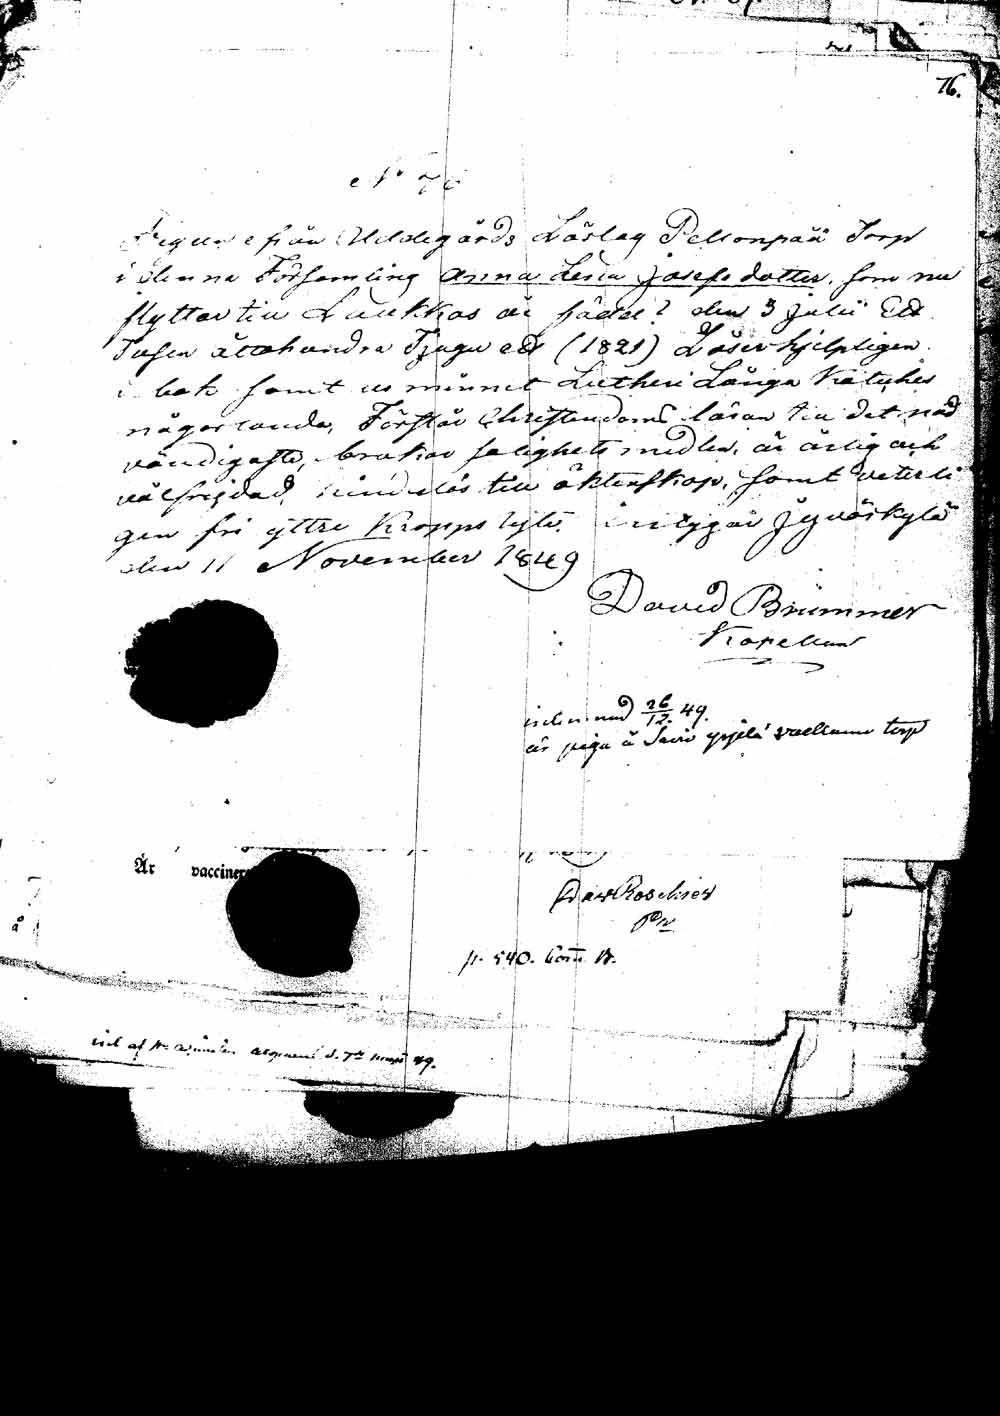 76.
N:o 76
Pigan ifrån Uddegårds Läslag Pellonpää Torp
i denna Församling Anna Lena Josefsdotter, som nu
flyttar till Laukkas är född den 3 Julii Ett
Tusen åttahundra Tjugu ett (1821) Läser hjelpligen
i bok samt ur minnet Lutheri Långa Katches
någorlunda, Förstår Christendoms läran till det nöd
vändigaste, brukar salighets medlen, är ärlig och
välfrejdad, hinderlös till äktenskap, samt veterli
gen fri yttre Kropps lyte. intygar Jyväskylä
den 11 November 1849
David Brummer
Kapellan
inlemnad 26/12. 49.
är piga å torp
Är vaccinera
p. 540.
inl af d. 7de 49.